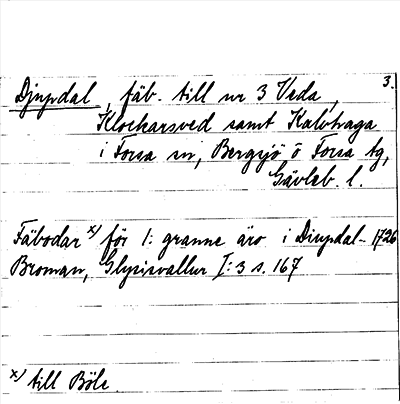 3.
Djupdal, fäb. till nr 3 Veda,
Klockarsved samt Kalvhaga
i Forsa sn, Bergsjö o Forsa tg,
Gävleb. l.
Fäbodar x) för 1: granne äro i Diupdal - 1726
Broman, Glysisvallur I: 3 s. 167
x) till Böle